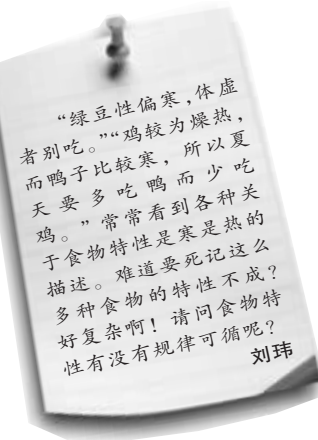 “绿豆性偏寒，体虚
者别吃。”“鸡较为燥热，
而鸭子比较寒，所以夏
天要多吃鸭而少吃
鸡。”常常看到各种关
于食物特性是寒是热的
描述。难道要死记这么
多种食物的特性不成？
好复杂啊！请问食物特
性有没有规律可循呢？
刘玮